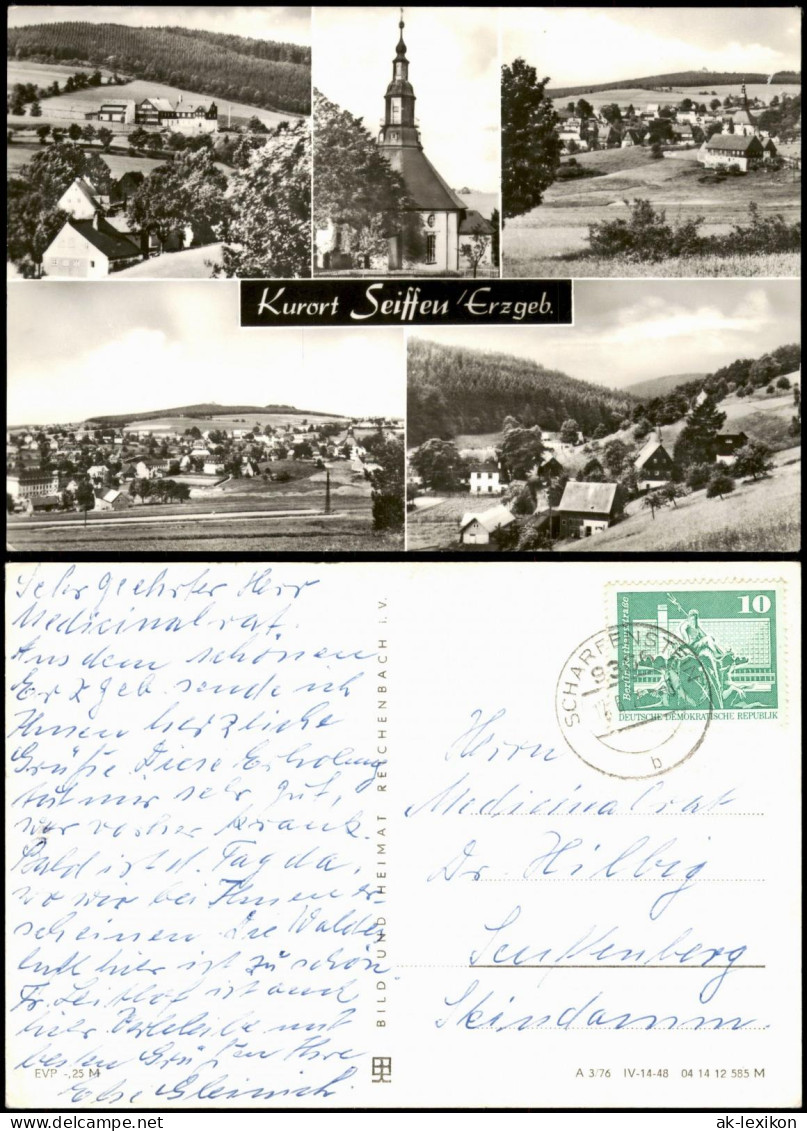 Kurort Seiffen/Erzgeb.
Sehr geehrter Herr
Medicinalrat.
Aus dem schönen
Erzgeb. sende ich
Ihnen herzliche
Grüße Diese Erholung
tut mir sehr gut,
war vorher krank.
Bald ist d. Tag da,
wo wir bei Ihnen er-
scheinen. Die Waldes
luft hier ist zu schön
Fr. ist auch
hier. Verbleibe mit
besten Grüßen Ihre
Else
EVP -,25 M
BILD UND HEIMAT REICHENBACH I. V.
10
Berlin, Rathausstraße
DEUTSCHE DEMOKRATISCHE REPUBLIK
SCHARFENSTEIN
b
Herrn
Medicinalrat
Dr. Hilbig
Senftenberg
A 3/76 IV-14-48 04 14 12 585 M
www.ansichtskarten-lexikon.de
ak-lexikon